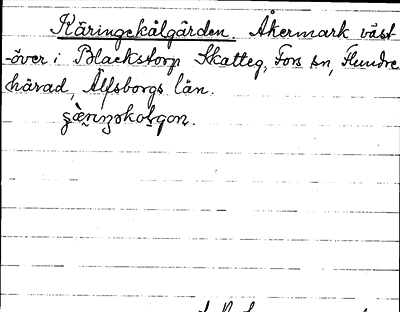 Käringekålgården. Åkermark väst
-över i Blackstorp Skatteg, Fors sn, Flundre
härad, Älfsborgs län.